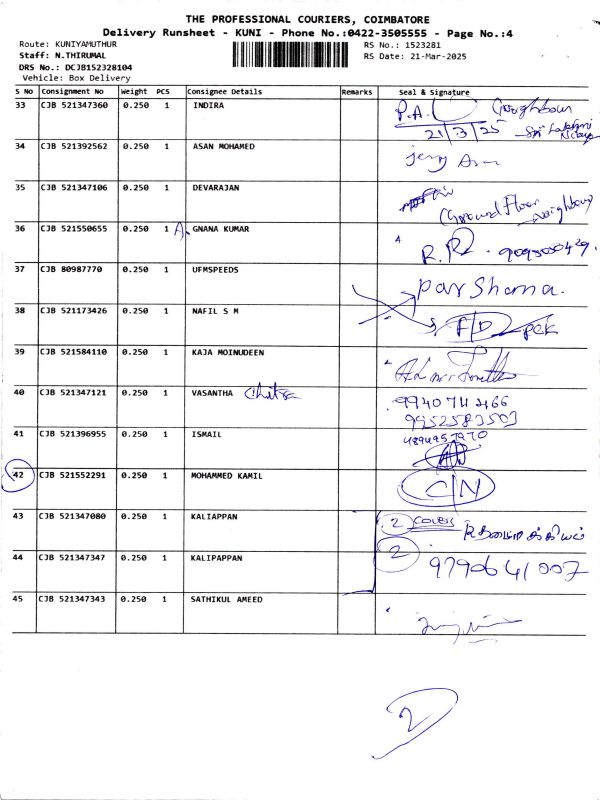 THE PROFESSIONAL COURIERS, COIMBATORE
Delivery Runsheet - KUNI - Phone No.:0422-3505555 - Page No.:4
Route: KUNIYAMUTHUR RS No.: 1523281
Staff: N.THIRUMAL RS Date: 21-Mar-2025
DRS No.: DCJB152328104
Vehicle: Box Delivery
S No Consignment No Weight PCS Consignee Details Remarks Seal & Signature
33 CJB 521347360 0.250 1 INDIRA P.A.
21/3/25
34 CJB 521392562 0.250 1 ASAN MOHAMED
35 CJB 521347106 0.250 1 DEVARAJAN
Ground Floor Neighbour
36 CJB 521550655 0.250 1 A. GNANA KUMAR
37 CJB 80987770 0.250 1 UFMSPEEDS
38 CJB 521173426 0.250 1 NAFIL S M F/D
39 CJB 521584110 0.250 1 KAJA MOINUDEEN
40 CJB 521347121 0.250 1 VASANTHA Chitra
41 CJB 521396955 0.250 1 ISMAIL
42 CJB 521552291 0.250 1 MOHAMMED KAMIL C/N
43 CJB 521347080 0.250 1 KALIAPPAN 2 COVERS
44 CJB 521347347 0.250 1 KALIPAPPAN 2 9790641007
45 CJB 521347343 0.250 1 SATHIKUL AMEED
2